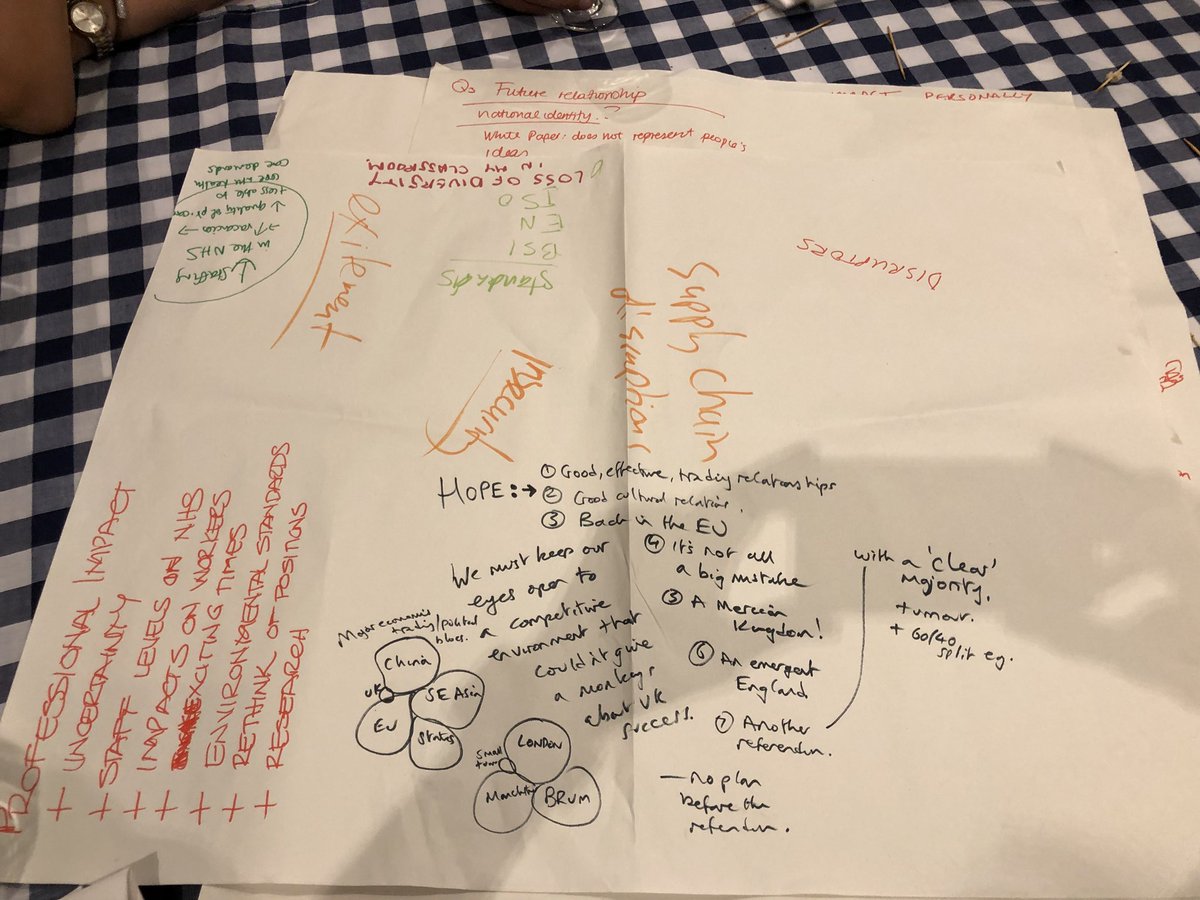 Q3 Future relationship
national identity.?
White Paper: does not represent people's
ideas
PERSONALLY
LOSS OF DIVERSITY
IN MY CLASSROOM
↓ Staffing
in the NHS
→ ↑ vacancies →
↓ quality of
less able to
care demands
Standards
BSI
EN
ISO
exitement
Insecurity
Supply Chain
disruption
DISRUPTORS
PROFESSIONAL IMPACT
+ UNCERTAINTY
+ STAFF LEVELS ON NHS
+ IMPACTS ON WORKERS
+ EXCITING TIMES
+ ENVIRONMENTAL STANDARDS
+ RETHINK OF POSITIONS
+ RESEARCH
HOPE: → ① Good, effective, trading relationships
② Good cultural relations.
③ Back in the EU
④ It's not all
a big mistake
⑤ A Mercian
Kingdom!
⑥ An emergent
England
⑦ Another
referendum.
with a 'clear'
majority.
+ 60/40
split eg.
— No plan
before the
referendum.
We must keep our
eyes open to
a competitive
environment that
couldn't give
a monkeys
about UK
success.
Major economic
trading/political
blocs.
China
UK
SE Asia
EU
States
LONDON
Small
town
Manchester
BRUM